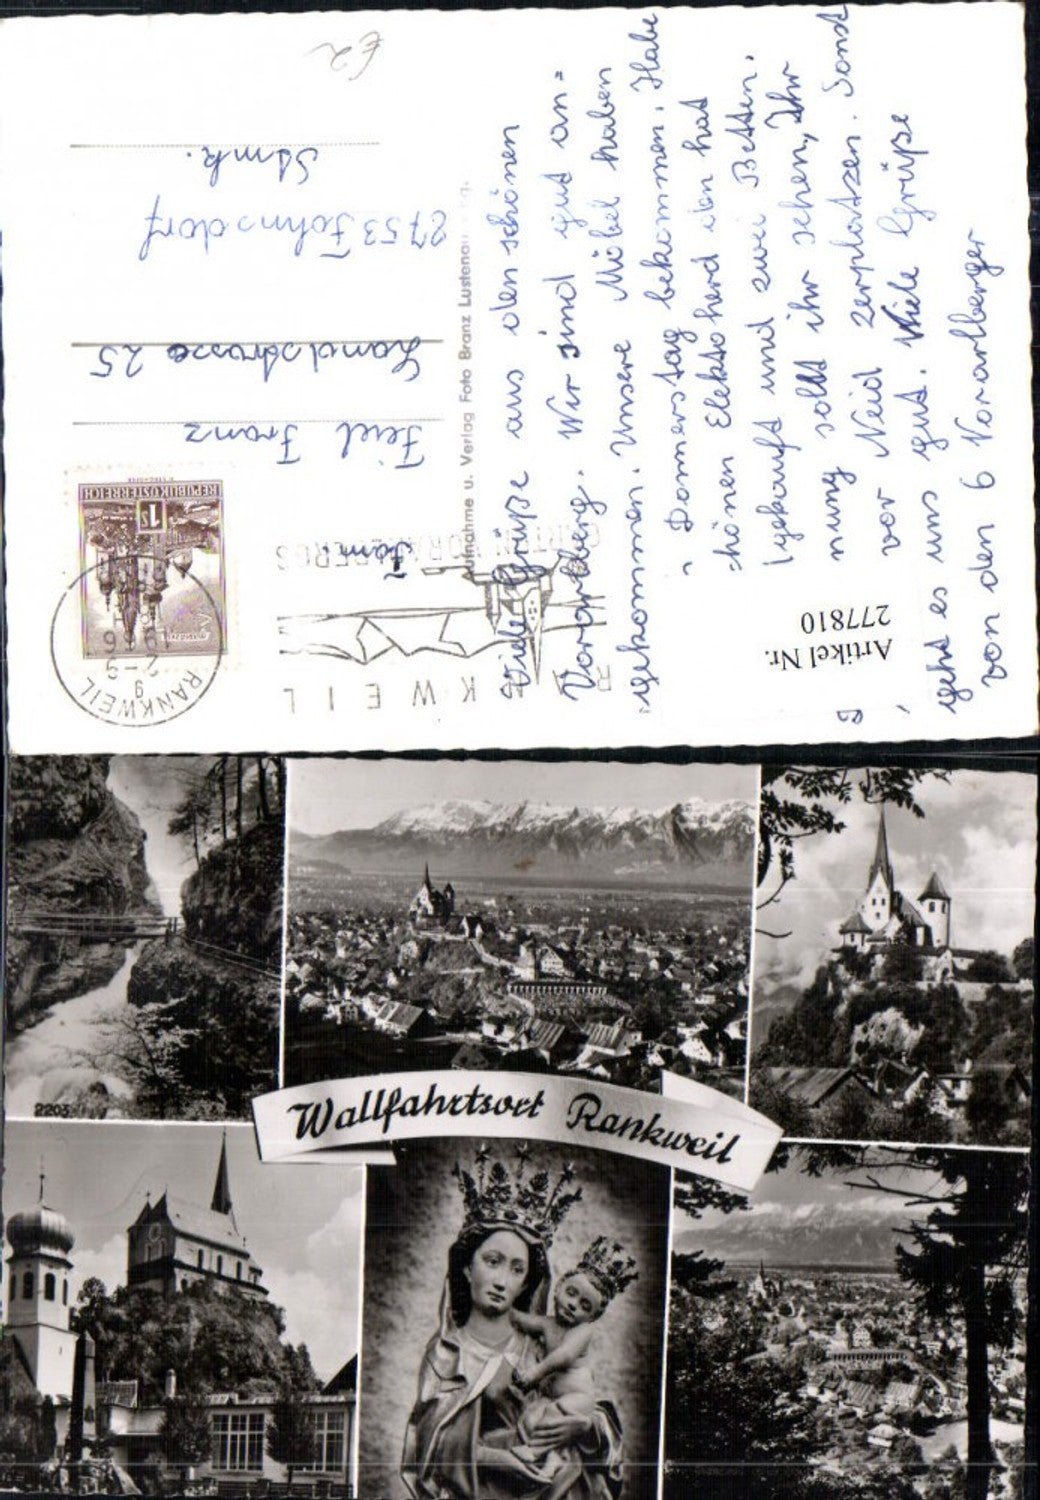 £2
Fam.
Feiel Franz
Landstrasse 25
8753 Fohnsdorf
Stmk.
REPUBLIK ÖSTERREICH
1S
RANKWEIL
RANKWEIL
GARTEN VORARLBERGS
Aufnahme u. Verlag Foto Branz Lustenau
Artikel Nr.
277810
Viele Grüße aus den schönen
Vorarlberg. Wir sind gut an=
gekommen. Unsere Möbel haben
Donnerstag bekommen. Habe
schönen Elektoherd den hat
gekauft und zwei Betten.
nung sollt ihr sehen, Ihr
vor Neid zerplatzen. Sonst
geht es uns gut. Viele Grüße
von den 6 Vorarlberger
Wallfahrtsort Rankweil
2203